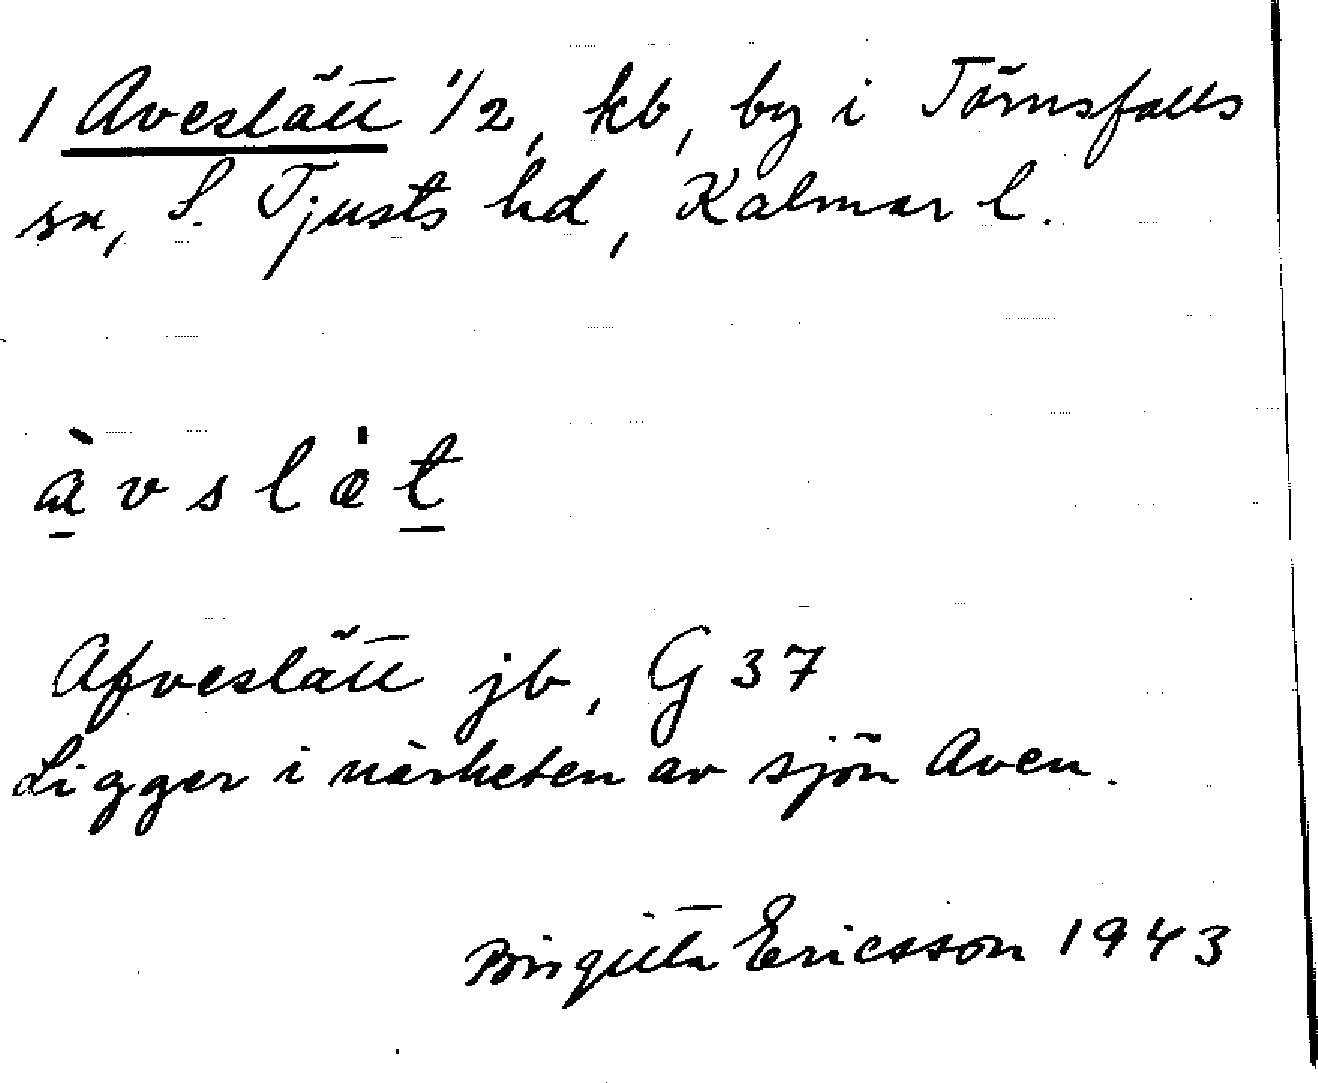 1 Aveslätt 1/2, kb, by i Törnsfalls
sn, S. Tjusts hd, Kalmar l.
à̠ v s l æ̇ t̠
Afveslätt jb, G 37
Ligger i närheten av sjön Aven.
Birgitta Ericsson 1943